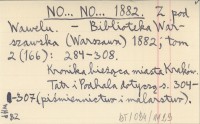 NO... NO... 1882. Z pod
Wawelu. - Biblioteka War-
szawska (Warszawa) 1882; tom
2 (166): 284-308.
Kronika bieżąca miasta Kraków.
Tatr i Podhala dotyczą s. 304-
-307 (piśmiennictwo i malarstwo).
82